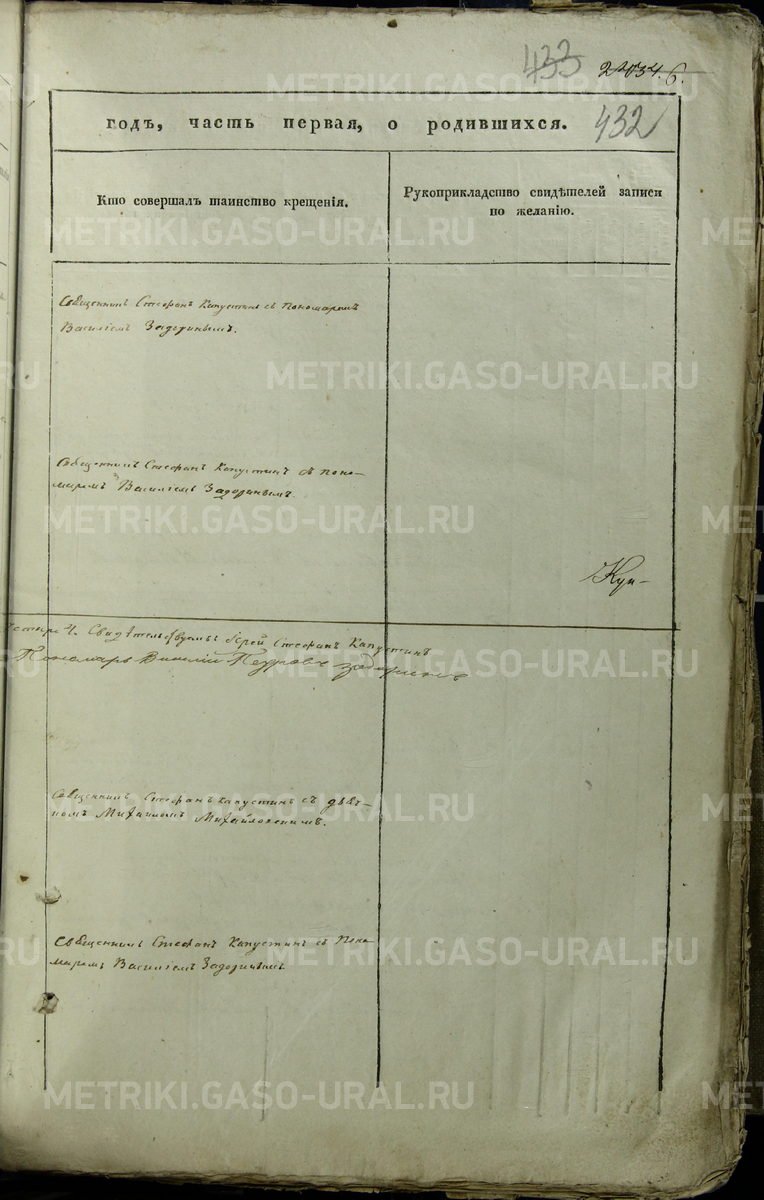 433 2034. 6.
годъ, часть первая, о родившихся. 432
Кто совершалъ таинство крещенія.
Рукоприкладство свидѣтелей записи
по желанію.
Священникъ Стефанъ Капустинъ съ Пономаремъ
Василіемъ Задоринымъ.
Священникъ Стефанъ Капустинъ съ Поно-
маремъ Василіемъ Задоринымъ.
Куп-
4. Свидѣтельствуемъ Іерей Стефанъ Капустинъ
Пономарь Василій Задоринъ
Священникъ Стефанъ Капустинъ съ дья-
комъ Михаиломъ Михайловскимъ.
Священникъ Стефанъ Капустинъ съ Поно-
маремъ Василіемъ Задоринымъ
METRIKI.GASO-URAL.RU